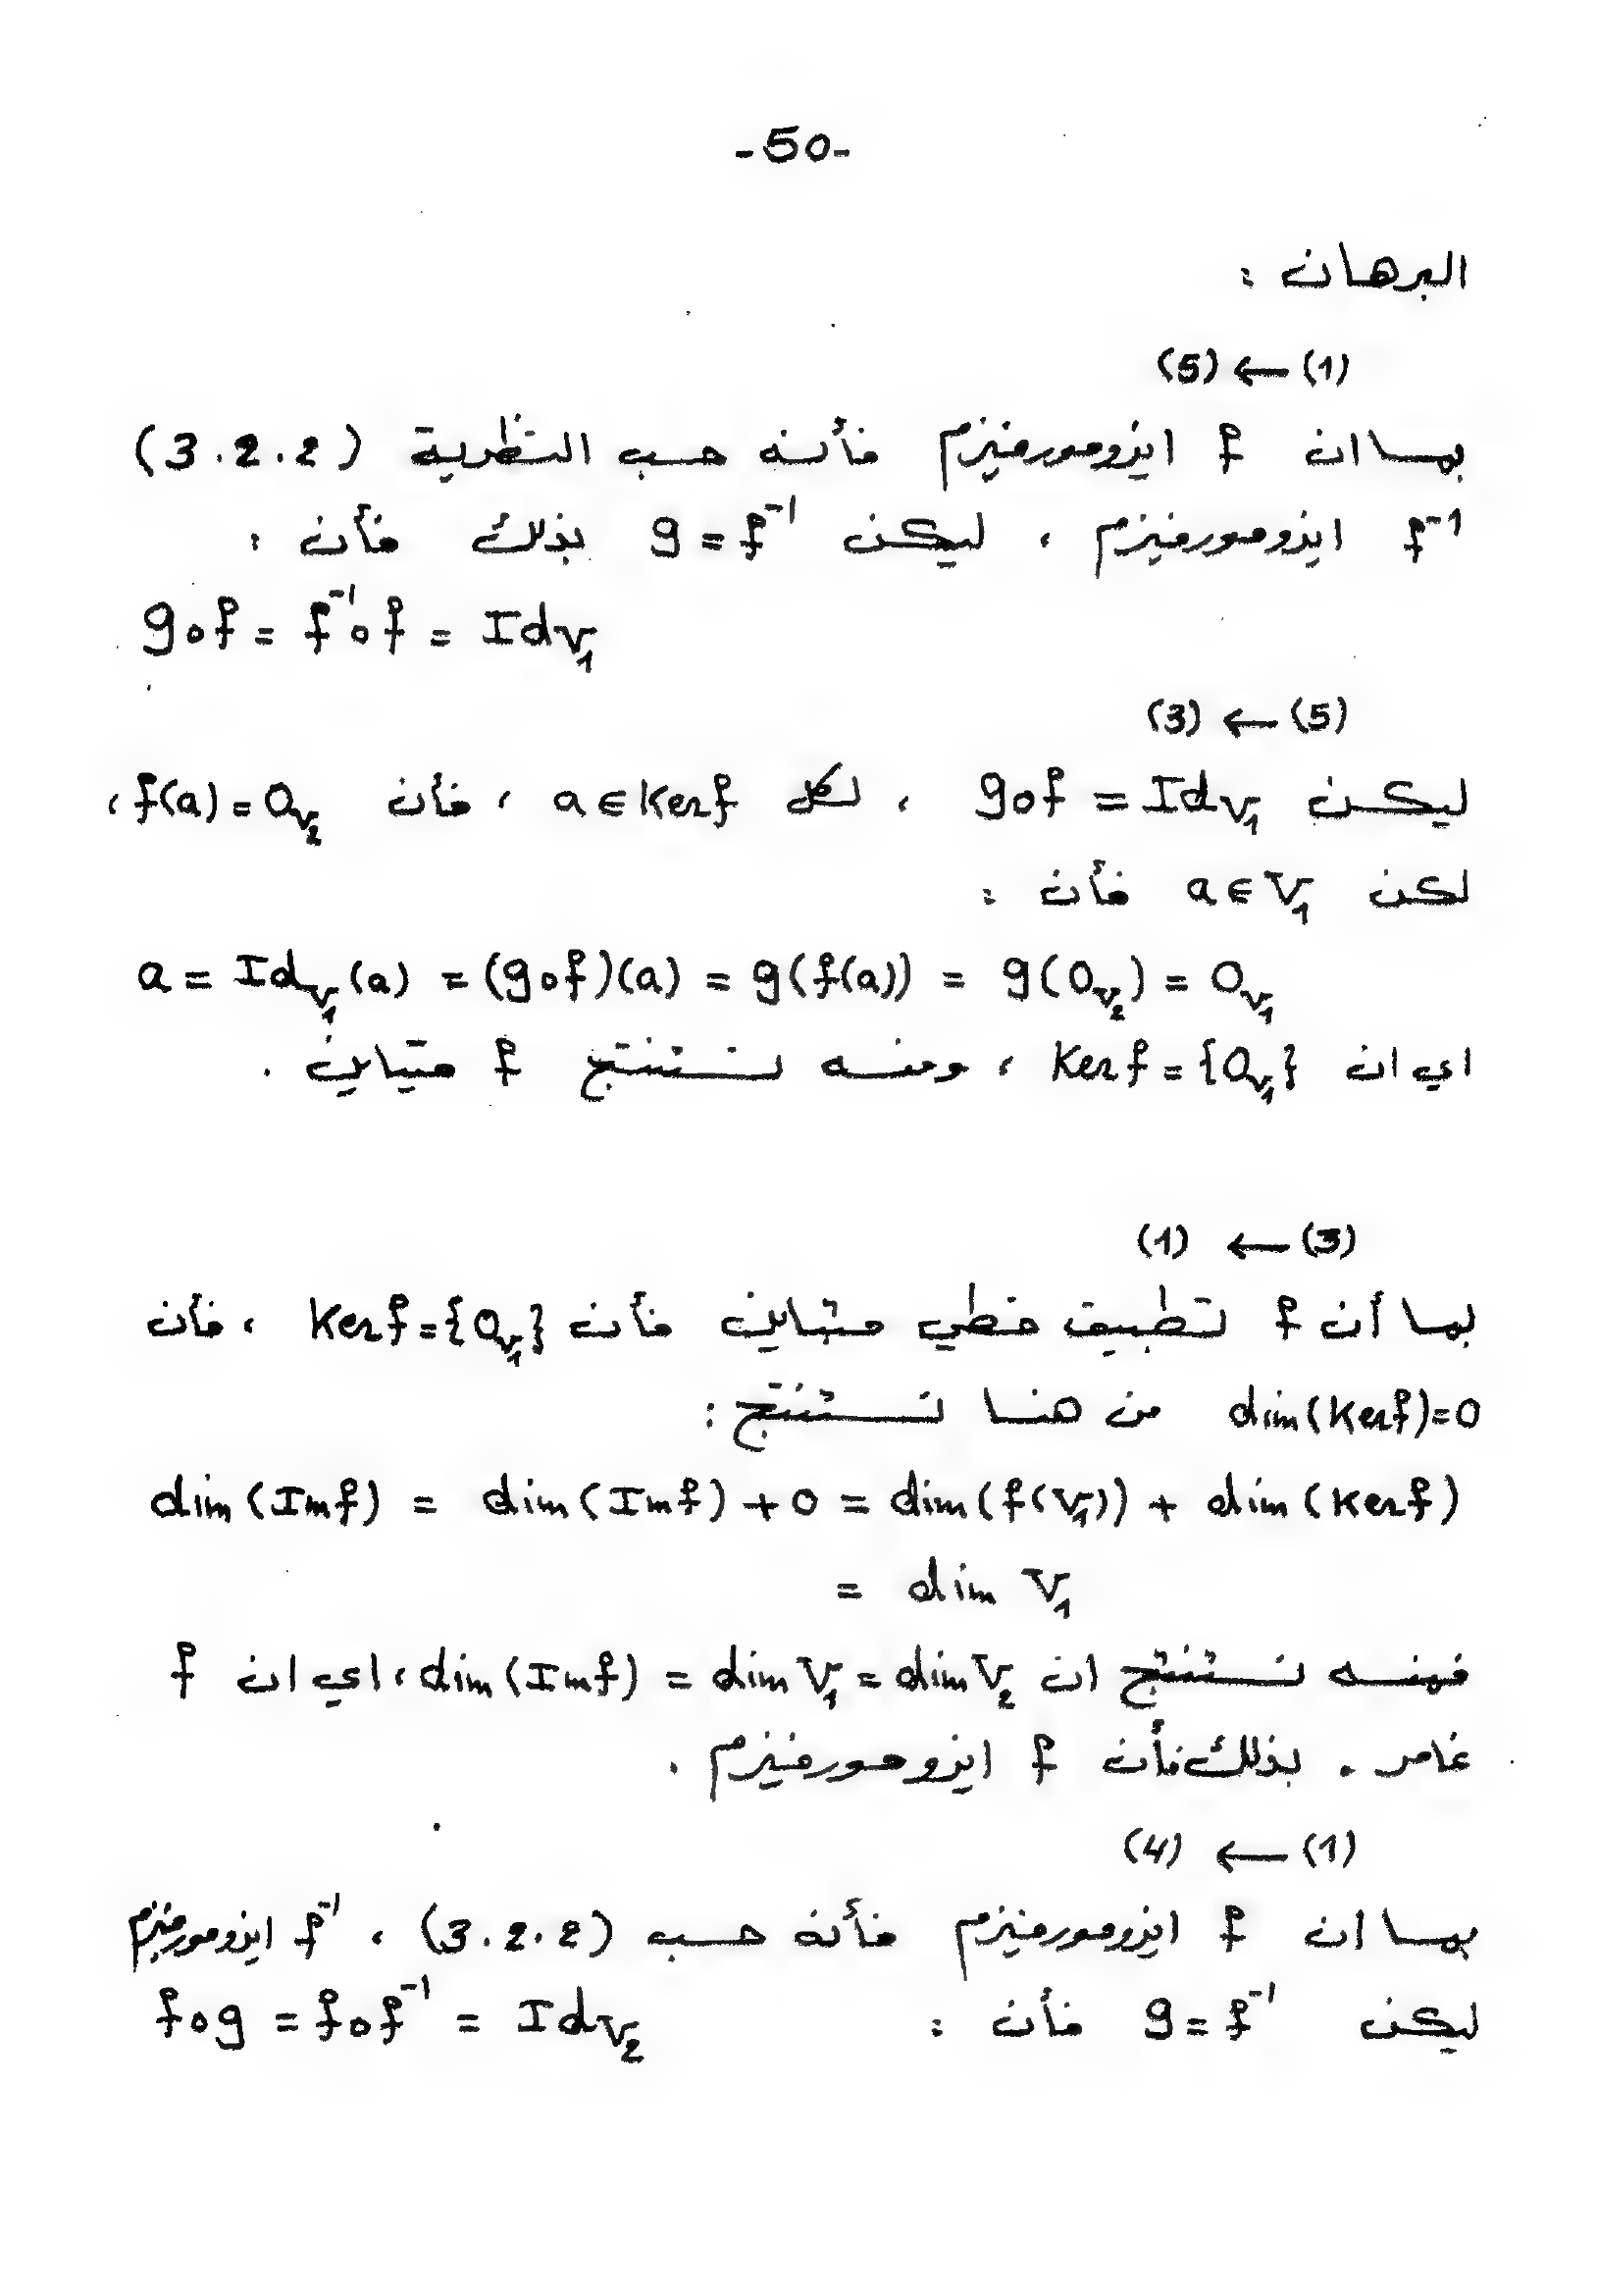 -50-
البرهان :
(1) ← (5)
بما ان f ايزومورفيزم فأنه حسب النظرية (3.2.2)
f⁻¹ ايزومورفيزم ، ليكن g = f⁻¹ بذلك فأن :
gof = f⁻¹of = Id_V₁
(5) ← (3)
ليكن gof = Id_V₁ ، لكل a ∈ Kerf ، فأن f(a) = O_V₂ ،
لكن a ∈ V₁ فأن :
a = Id_V₁(a) = (gof)(a) = g(f(a)) = g(O_V₂) = O_V₁
اي ان Kerf = {O_V₁} ، ومنه نستنتج f متباين .
(3) ← (1)
بما أن f تطبيق خطي متباين فأن Kerf = {O_V₁} ، فأن
dim(Kerf) = 0 من هنا نستنتج :
dim(Imf) = dim(Imf) + 0 = dim(f(V₁)) + dim(Kerf)
= dim V₁
فمنه نستنتج ان dim(Imf) = dim V₁ = dim V₂ ، اي ان f
غامر . بذلك فأن f ايزومورفيزم .
(1) ← (4)
بما ان f ايزومورفيزم فأنه حسب (3.2.2) ، f⁻¹ ايزومورفيزم
ليكن g = f⁻¹ فأن : fog = fof⁻¹ = Id_V₂